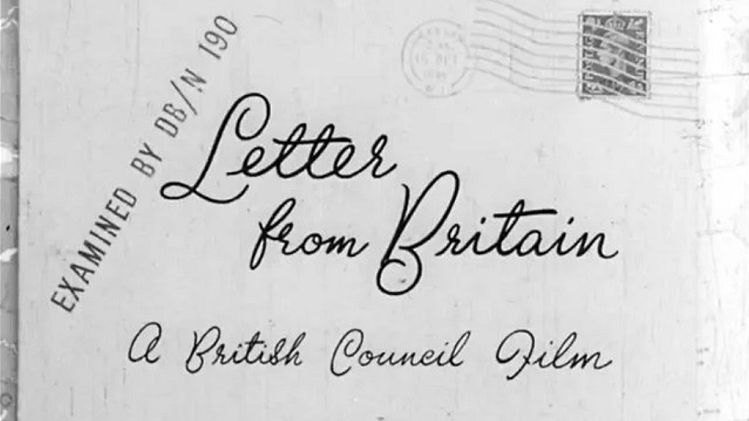 EXAMINED BY DB/N 190
Letter
from Britain
A British Council Film